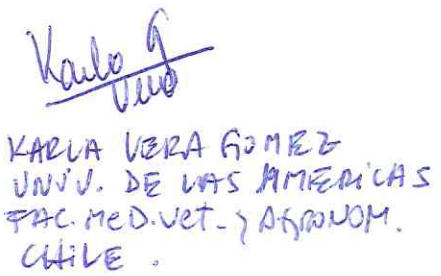 Karla G
Vera
KARLA VERA GOMEZ
UNIV. DE LAS AMERICAS
FAC. MED. VET. y AGRONOM.
CHILE.